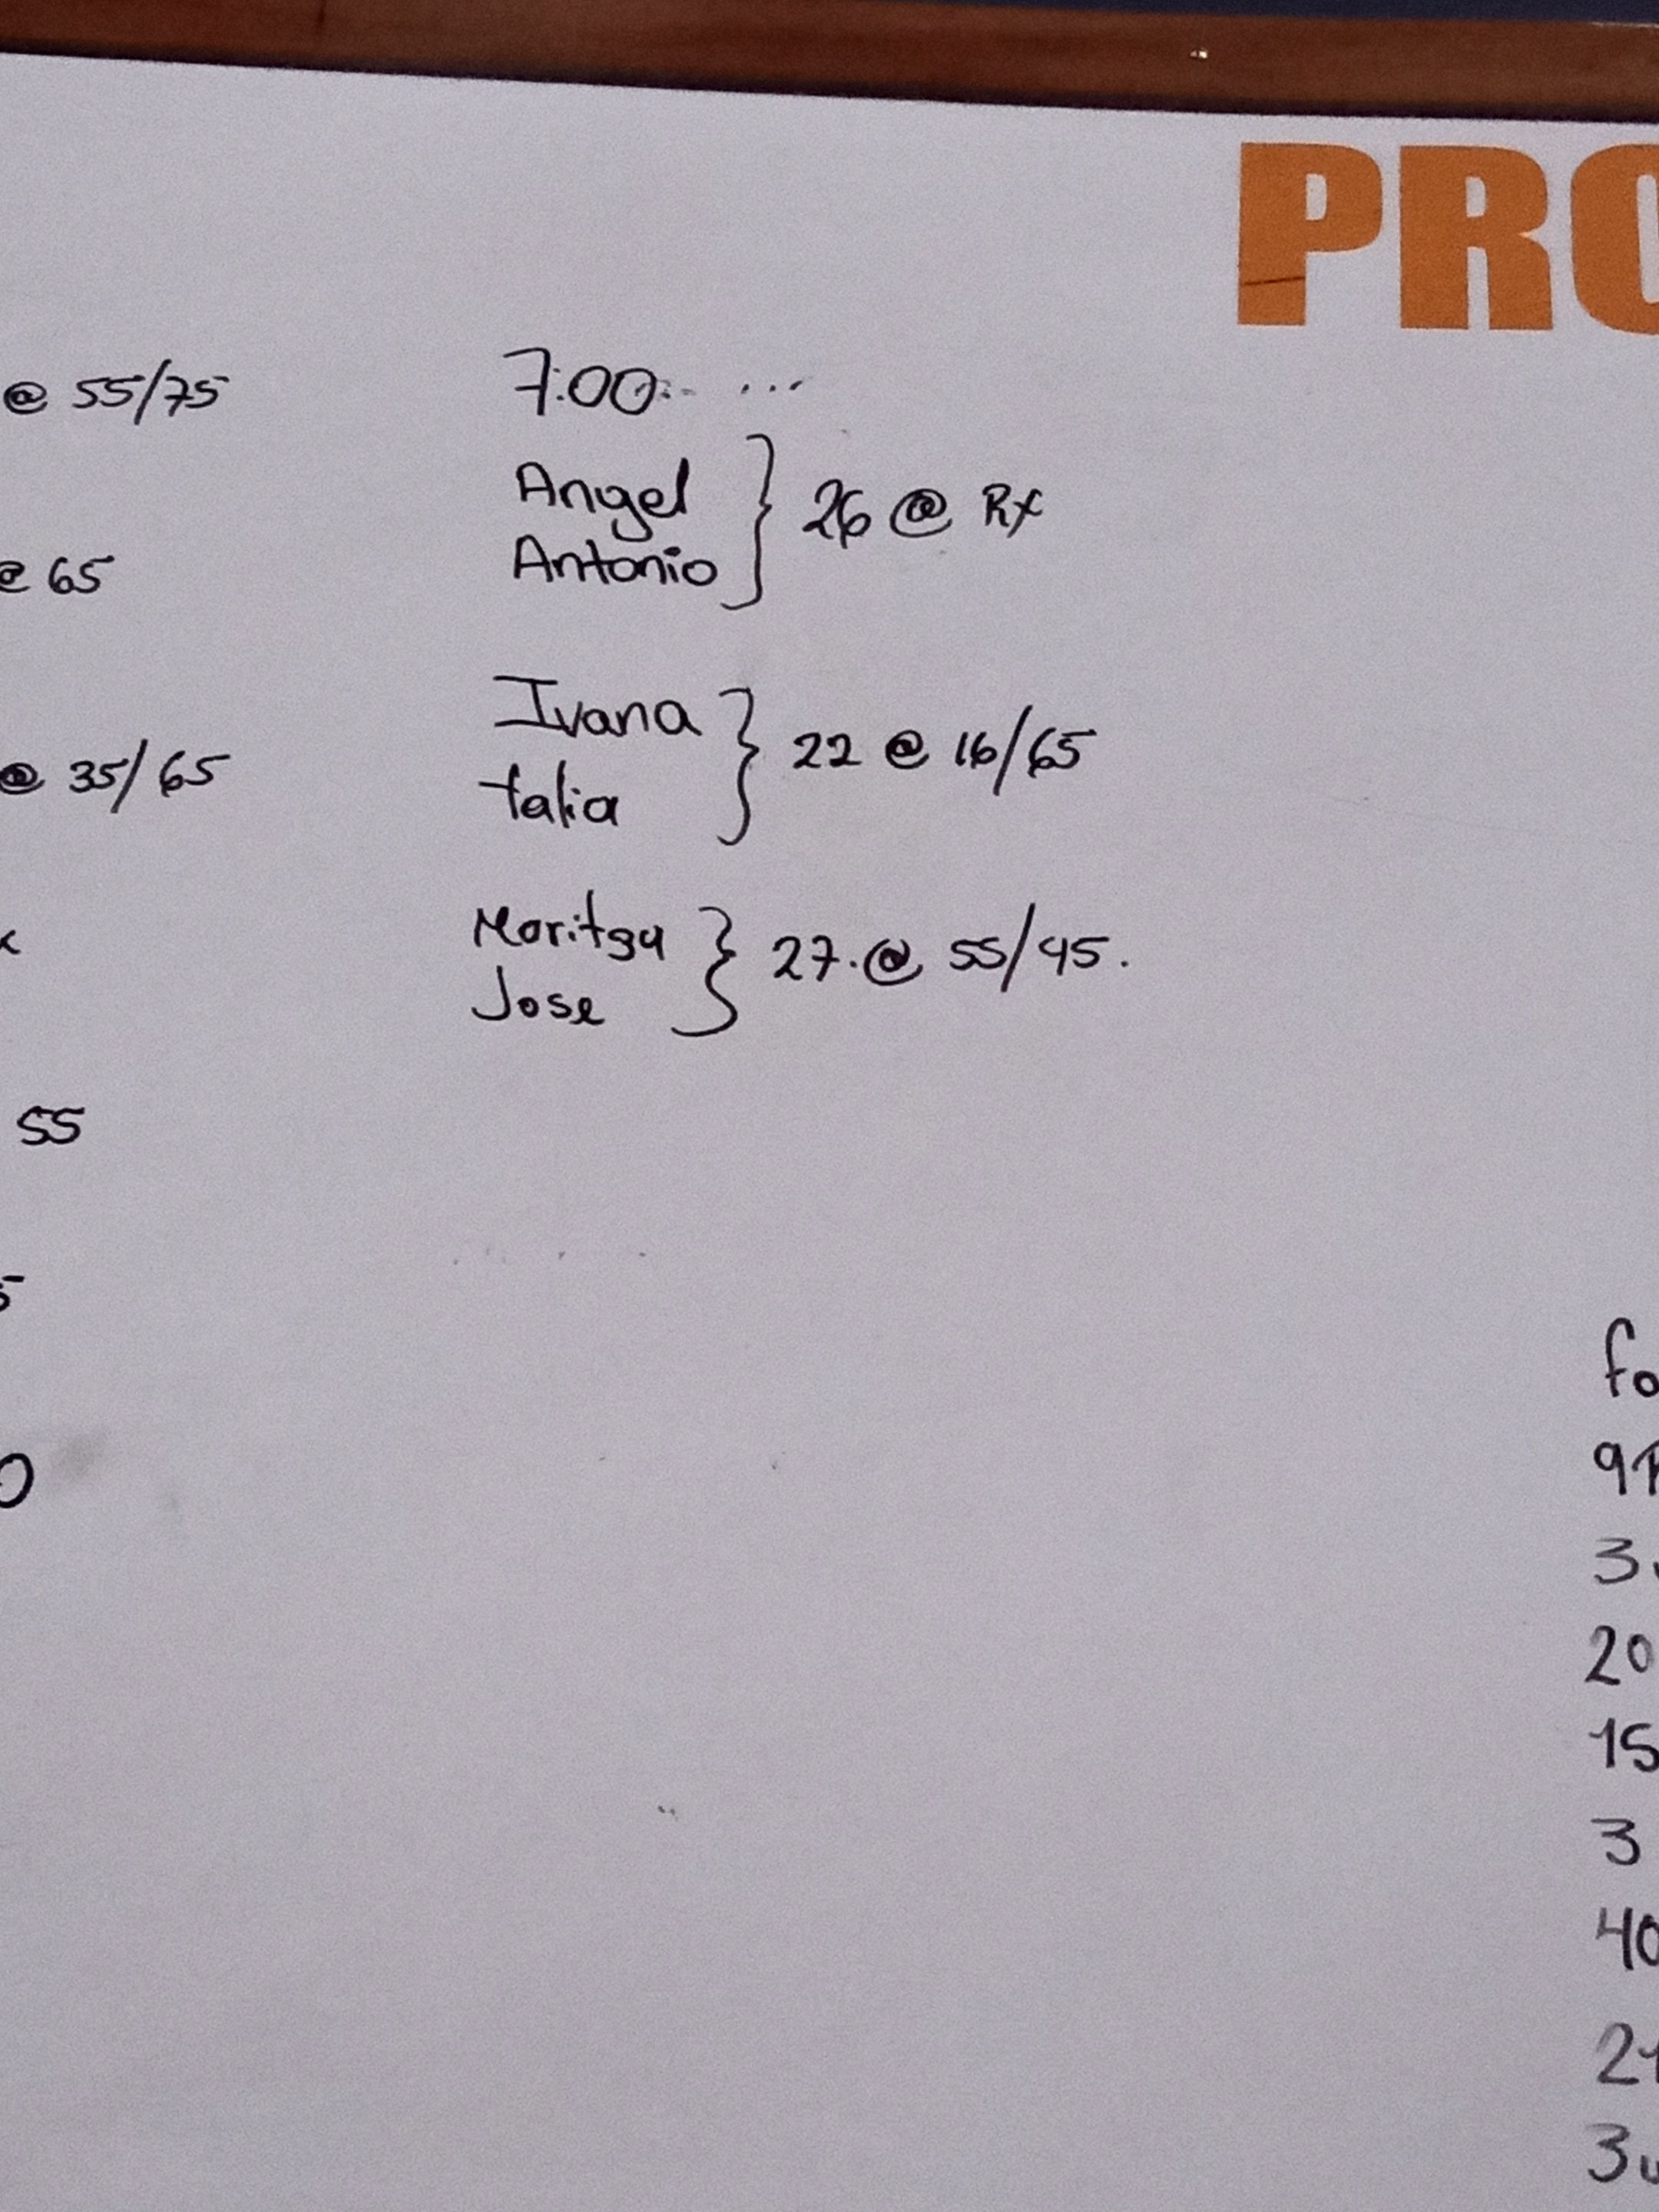 PRO
@ 55/75
@ 65
@ 35/65
x
55
5
0
7:00 ...
Angel
Antonio } 26 @ Rx
Ivana
talia } 22 @ 16/65
Maritza
Jose } 27.@ 55/45.
fo
9
3
20
15
3
40
21
3